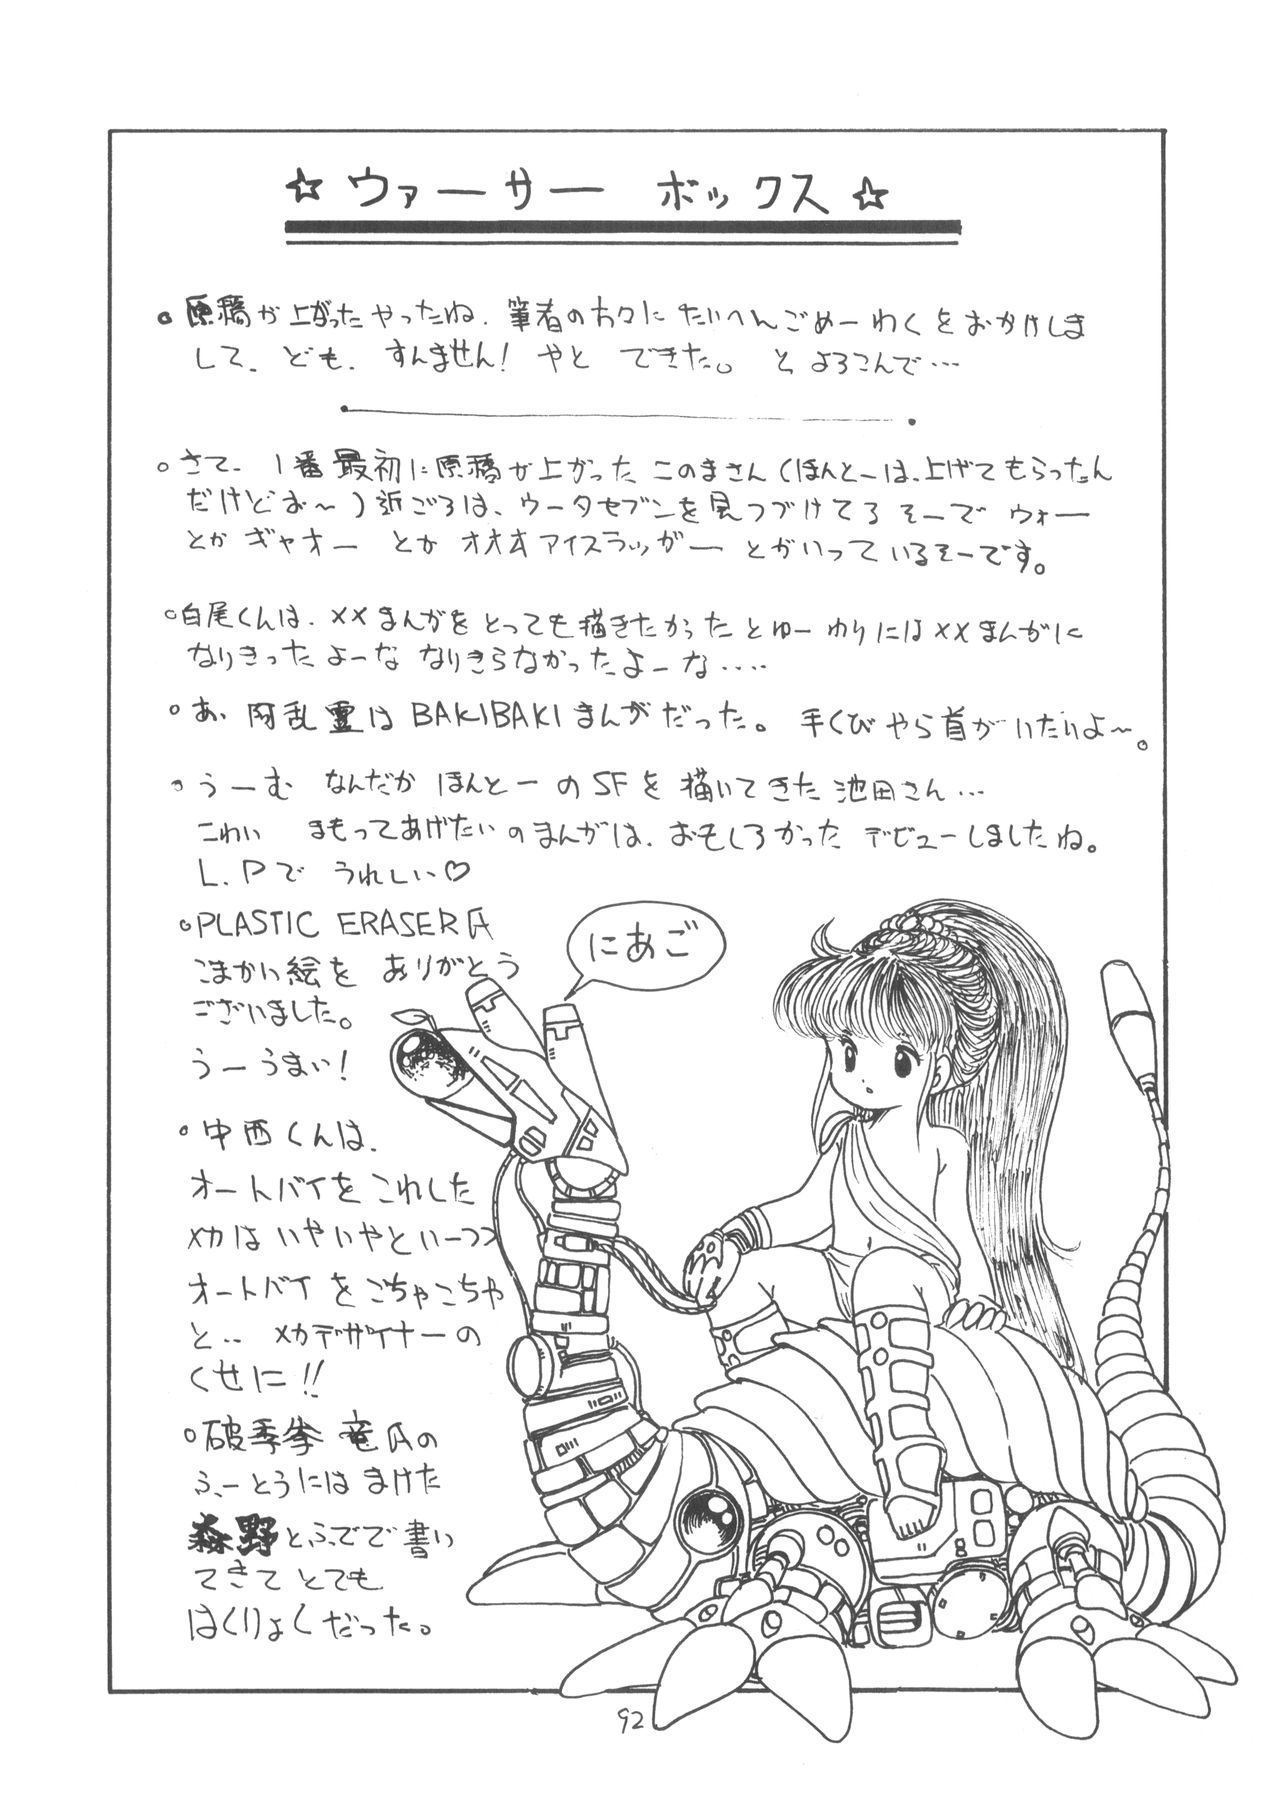 ☆ ウァーサー ボックス ☆
○ 原稿が上がった やったね. 筆者の方々に たいへんごめーわくをおかけしま
して. ども. すんません! やと できた。 と よろこんで…
○ さて. 1番最初に原稿が上がった このまさん(ほんとーは、上げてもらったん
だけどお〜)近ごろは、ウータセブンを見つづけてる そーで ウォー
とか ギャオー とか オオオ アイスラッガー とかいっているそーです。
○ 白尾くんは. ××まんがをとっても描きたかったとゆーわりには××まんがに
なりきったよーな なりきらなかったよーな‥‥
○ あ. 阿乱霊は BAKIBAKI まんがだった。 手くびやら首がいたいよ〜。
○ うーむ なんだか ほんとーのSFを描いてきた池田さん…
こわい まもってあげたいのまんがは、おもしろかった デビューしましたね。
L.Pで うれしい♡
○ PLASTIC ERASER氏
こまかい絵を ありがとう
ございました。
うーうまい!
にあご
○ 中西くんは.
オートバイを これした
メカは いやいやと いーつつ
オートバイを ごちゃごちゃ
と‥ メカデザイナーの
くせに!!
○ 破季拳 竜氏の
ふーとうには まけた
森野とふでで書い
てきて とても
はくりょくだった。
92